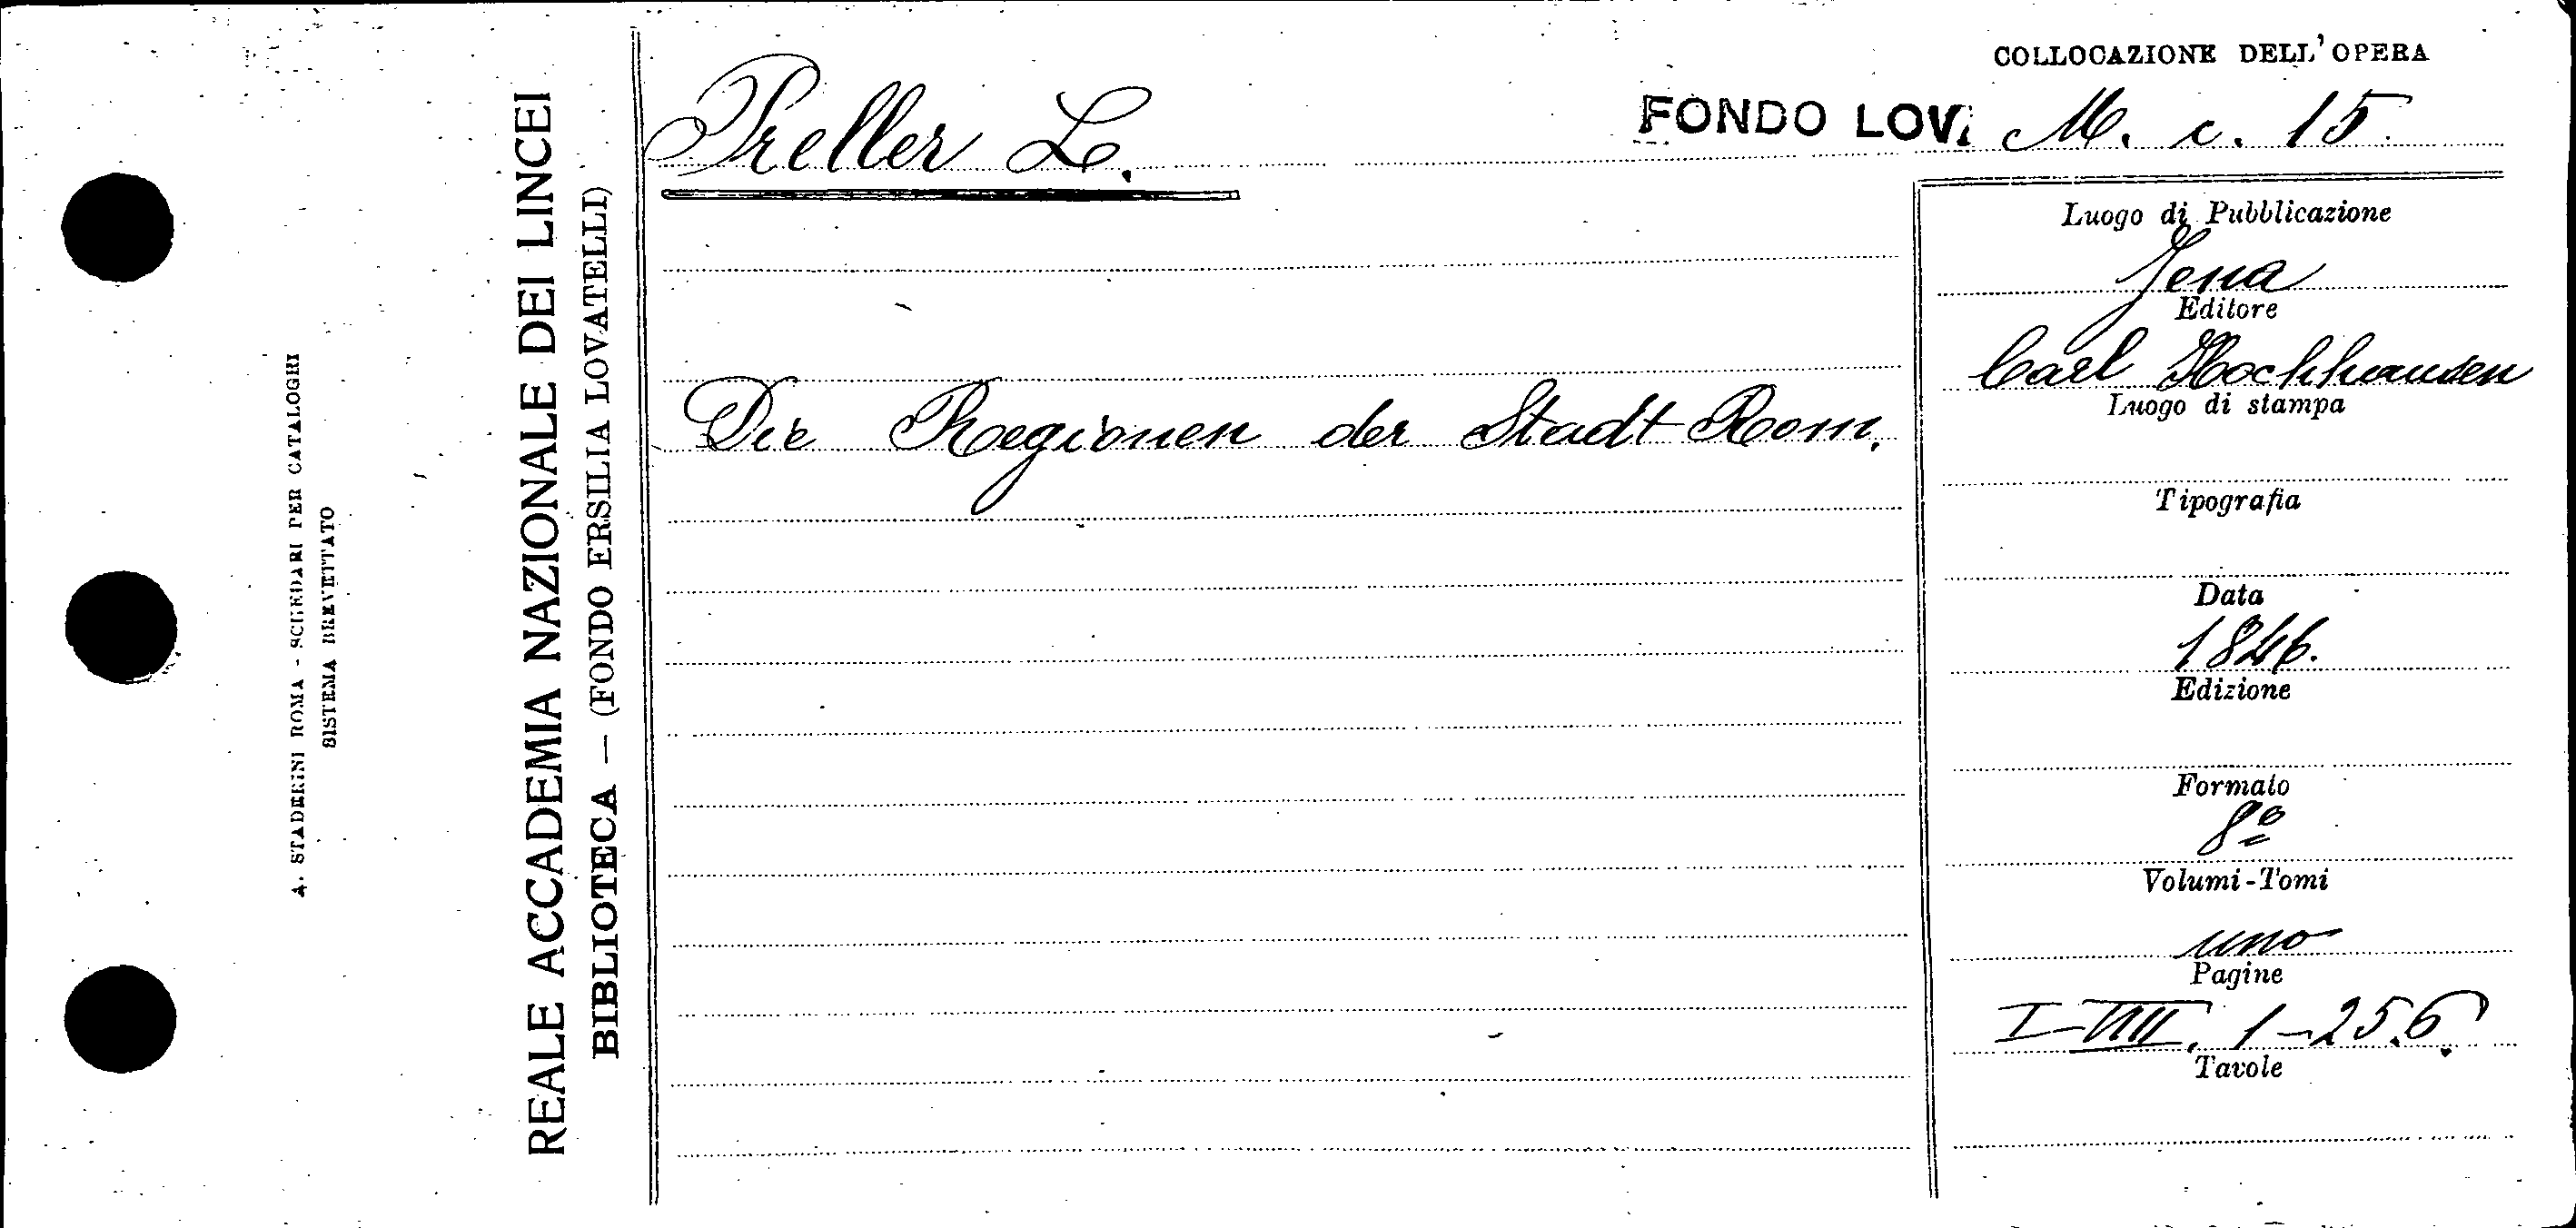 COLLOCAZIONE DELL'OPERA
FONDO LOV. M. c. 15.
Preller L.
Die Regionen der Stadt Rom.
Luogo di Pubblicazione
Jena
Editore
Carl Hochhausen
Luogo di stampa
Tipografia
Data
1846.
Edizione
Formato
8º
Volumi-Tomi
uno
Pagine
I-VIII, 1-256.
Tavole
REALE ACCADEMIA NAZIONALE DEI LINCEI
BIBLIOTECA — (FONDO ERSILIA LOVATELLI)
A. STADERINI ROMA - SCHEDARI PER CATALOGHI
SISTEMA BREVETTATO